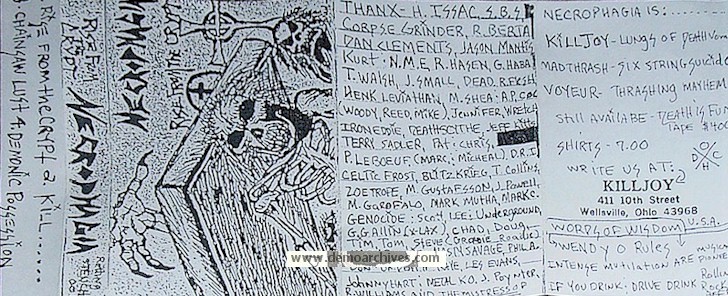 RISE FROM the CRYPT 2. KILL.....
CHAINSAW LUST 4. DEMONIC POSSESSION
RISE FROM
the CRYPT
NECROPHAGIA
NECROPHAGIA
RISE FROM the CRYPT
THANX- H. ISSAC, S.B.S.
CORPSE GRINDER, R. BERTA
DAN CLEMENTS, JASON MANTIS
KURT: N.M.E, R. HASEN, G. HABA
T. WALSH, J. SMALL, DEAD.
HENK LEVIATHAN, M. SHEA: A.P.
(WOODY, REED, MIKE), JENNIFER,
IRON EDDIE, DEATHSCYTHE, JEFF
TERRY SADLER, PAT: CHRIS,
P. LEBOEUF (MARC: MICHEAL), D.R.I
CELTIC FROST, BLITZKRIEG, T. COLLINS,
ZOETROPE, M. GUSTAFSSON, J. POWELL,
M. GAROFALO, MARK MUTHA, MARK C.
GENOCIDE: SCOTT, LEE: UNDERGROUND,
G.G. ALLIN (X-LAX), CHAD, DOUG,
TIM, TOM, STEVE
SAVAGE, PHIL A.
LES EVANS,
JOHNNY HART, METAL KO, J. POYNTER,
R. WILLIAMS AND THE MISTRESS OF
NECROPHAGIA IS:......
KILLJOY- LUNGS OF DEATH VOM
MADTHRASH- SIX STRING SUICID
VOYEUR- THRASHING MAYHEM
Still AVAILABE- DEATH IS FUN
TAPE $4.00
SHIRTS- 7.00
WRITE US AT:
KILLJOY
411 10th Street
Wellsville, Ohio 43968
U.S.A.
WORDS OF WISDOM
WENDY O RULES
INTENSE MUTILATION ARE
IF YOU DRINK, DRIVE DRUNK
www.demoarchives.com